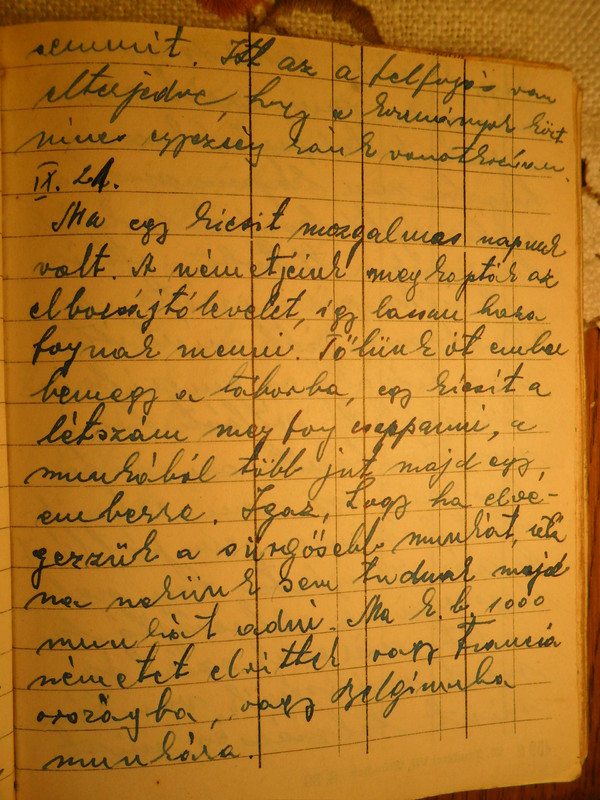 semmit. Itt az a felfogás van
elterjedve, hogy a kormányok közt
nincs egyezség ránk vonatkozóan.
IX. 21.
Ma egy kicsit mozgalmas napunk
volt. A németjeink megkapták az
elbocsájtólevelet, így lassan haza
fognak menni. Tőlünk öt ember
bemegy a táborba, egy kicsit a
létszám meg fog csappanni, a
munkából több jut majd egy
emberre. Igaz, hogy ha elvé-
gezzük a sürgősebb munkát, utá-
na nekünk sem tudnak majd
munkát adni. Ma k.b. 1000
németet elvittek vagy Francia
országba, vagy Belgiumba
munkára.